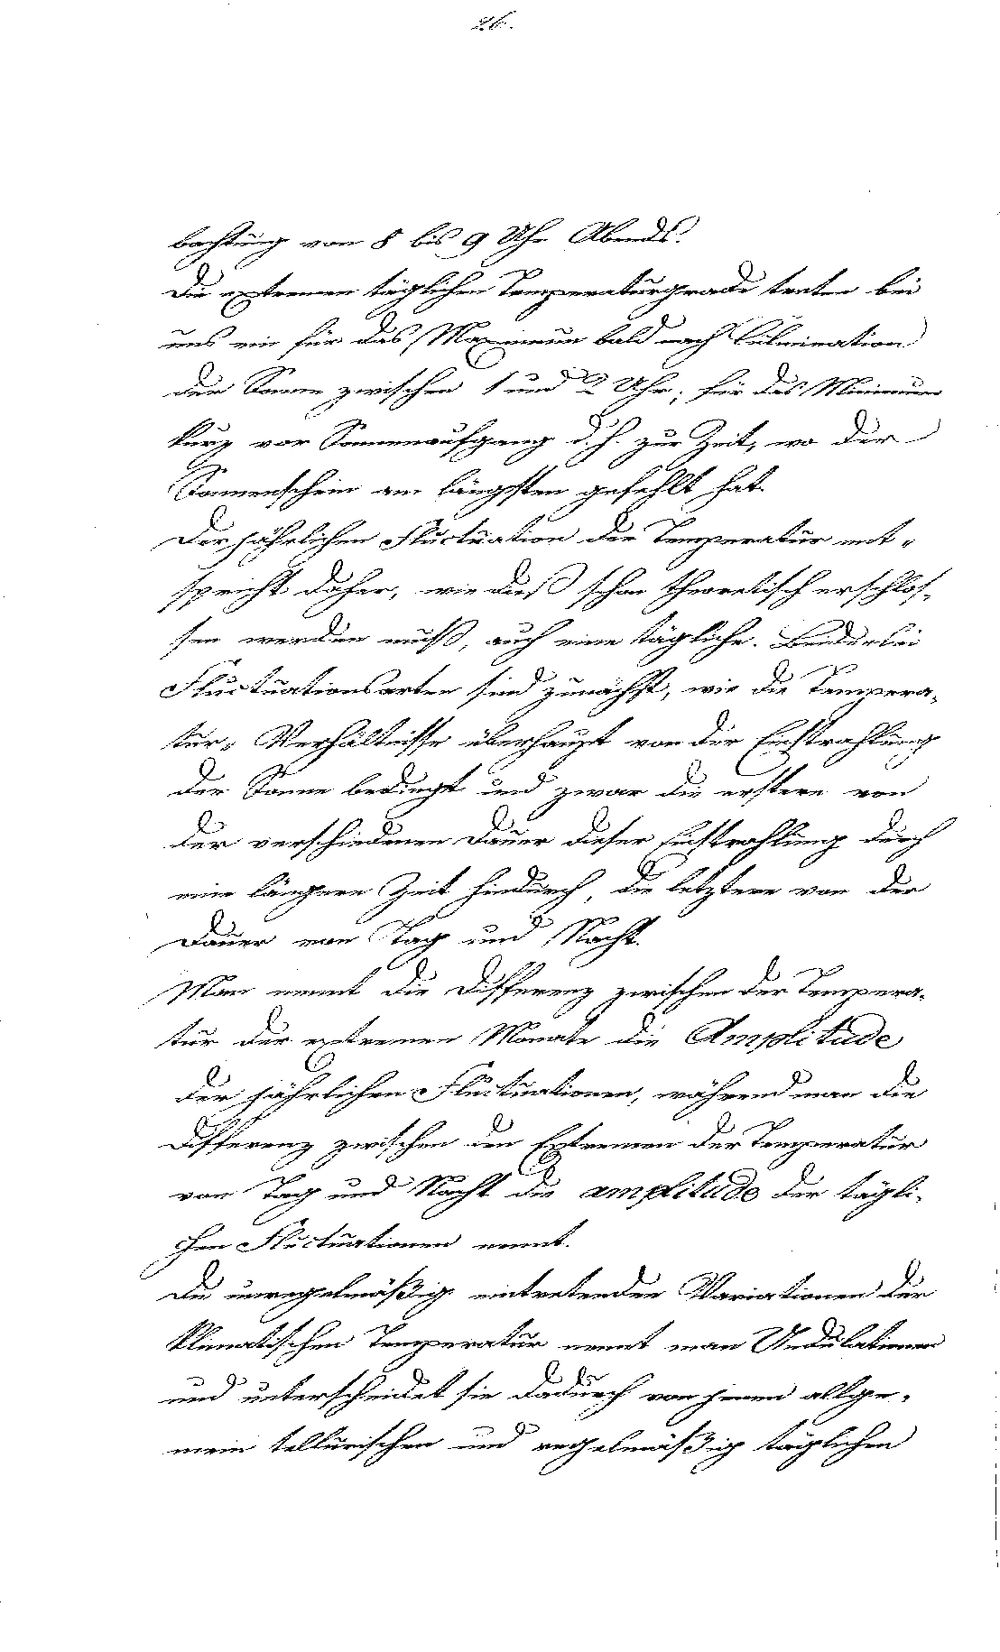 26.
bachtung von 8 bis 9 Uhr Abends.
Die extremen täglichen Temperaturgrade treten bei
uns ein für das Maximum bald nach Culmination
der Sonne zwischen 1 und 2 Uhr; für das Minimum
kurz vor Sonnenaufgang d. h. zur Zeit, wo der
Sonnenschein am längsten gefehlt hat.
Der jährlichen Fluctuation der Temperatur ent-
spricht daher, wie dieß schon theoretisch erschlos-
sen werden muß, auch eine tägliche. Beiderlei
Fluctuationsarten sind zunächst, wie die Tempera-
tur-Verhältnisse überhaupt von der Einstrahlung
der Sonne bedingt und zwar die erstere von
der verschiedenen Dauer dieser Einstrahlung durch
eine längere Zeit hindurch, die letztere von der
Dauer von Tag und Nacht.
Man nennt die Differenz zwischen der Tempera-
tur der extremen Monate die Amplitude
der jährlichen Fluctuationen, während man die
Differenz zwischen den Extremen der Temperatur
von Tag und Nacht die amplitude der tägli-
chen Fluctuationen nennt.
Die unregelmäßig eintretenden Variationen der
klimatischen Temperatur nennt man Undulationen
und unterscheidet sie dadurch von jenen allge-
mein tellurischen und regelmäßig täglichen